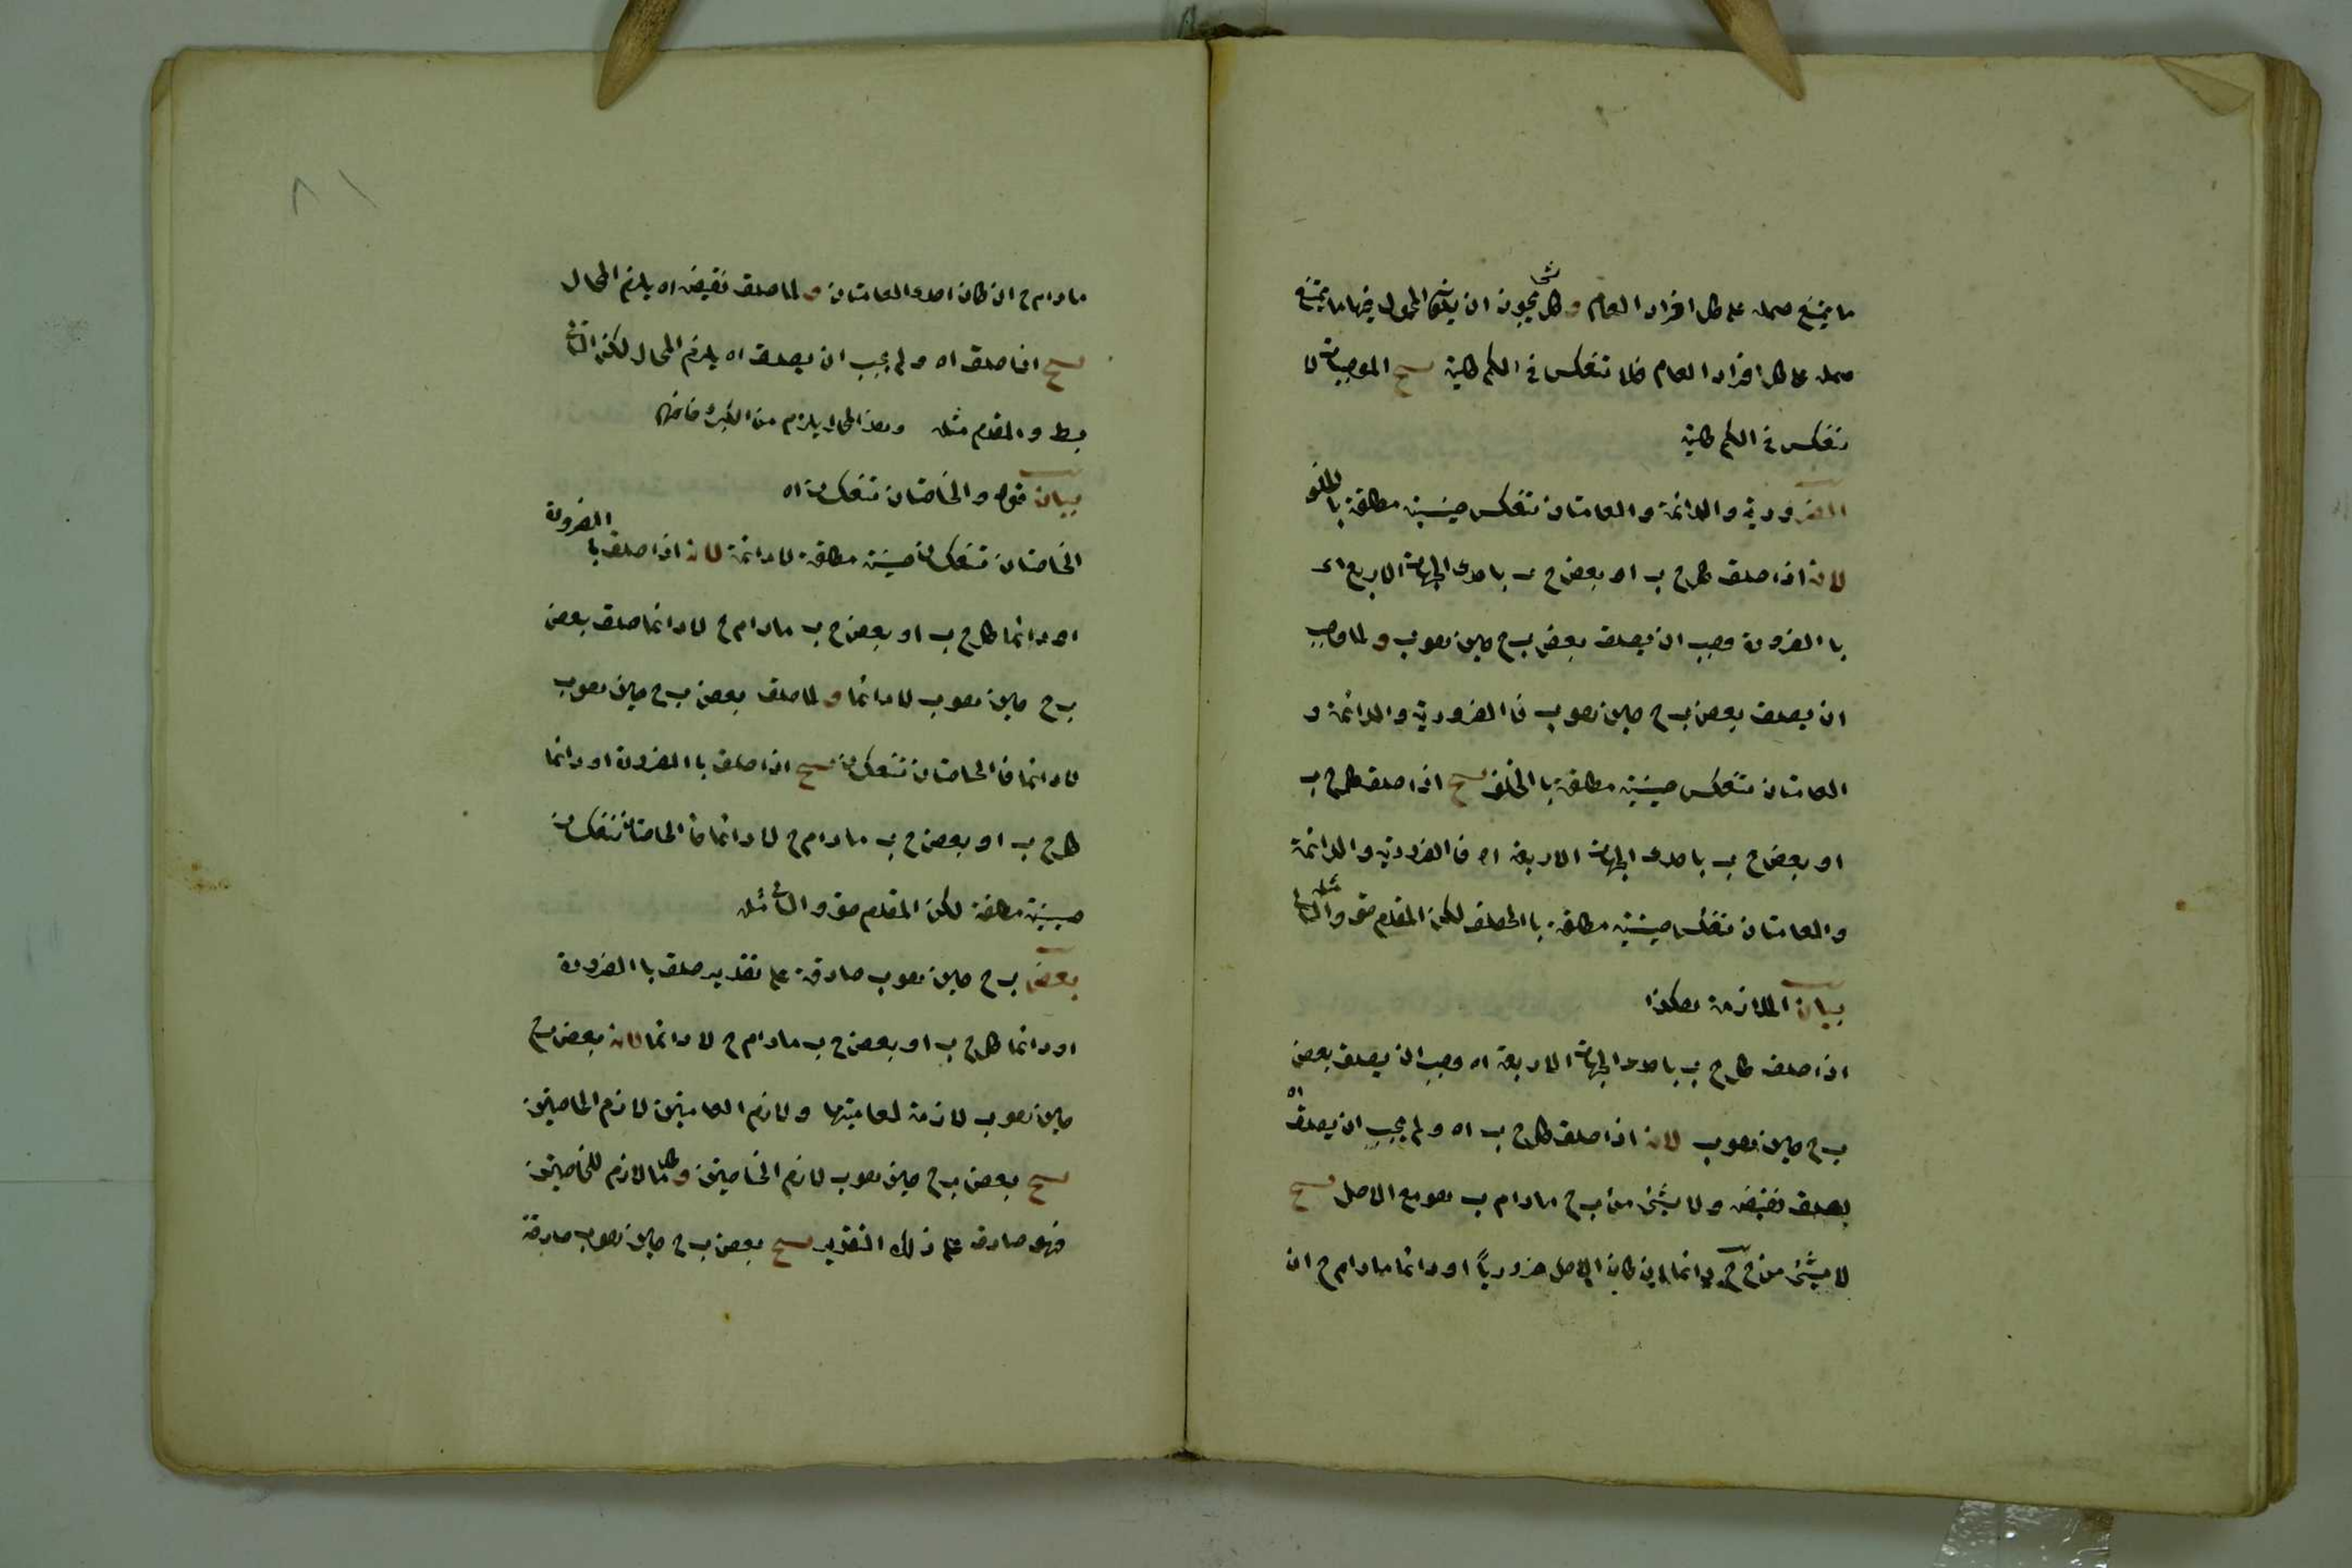 ما يمتنع حمله على كل افراد العام و كل شئ يجوز ان يكون المحمول فيها ما يمتنع
حمله على كل افراد العام فلا تنعكس في الكم كلية ينتج الموجبات لا
تنعكس في الكم كلية
الضرورية والدائمة والعامتان تنعكس حينية مطلقة با لخلف
لانه اذا صدق كل ج ب او بعض ج ب باحدى الجهات الاربع اى
با الضرورة وجب ان يصدق بعض ب ج حين هو ب و لما وجب
ان يصدق بعض ب ج حين هو ب فا الضرورية والدائمة و
العامتان تنعكس حينية مطلقة با الخلف ينتج اذا صدق كل ج ب
او بعض ج ب باحدى الجهات الاربعة اه فا الضرورية والدائمة
والعامتان تنعكس حينية مطلقة با لكن المقدم حق والتالى مثله
بيان الملازمة هكذا
اذا صدق كل ج ب باحدى الجهات الاربعة اه وجب ان يصدق بعض
ب ج حين هو ب لانه اذا صدق كل ج ب اه ولم يجب ان يصدق اه
يصدق نقيضه ولا شئ من ب ج مادام ب هو مع الاصل ينتج
لا شئ من ج ج دائما ان كان الاصل ضروريا او دائما مادام ج ان
مادام ج ان كان احدى العامتان و لما صدق نقيضه اه يلزم المحال
ينتج اذا صدق اه ولم يجب ان يصدق اه يلزم المحال لكن التالى
بط والمقدم مثله وهذا المحال يلزم من الكبرى
بيان قوله والخاصتان تنعكس اه
الخاصتان تنعكس حينية مطلقة لا دائمة لانه اذا صدق با الضرورة
او دائما كل ج ب او بعض ج ب مادام ج لا دائما صدق بعض
ب ج حين هو ب لا دائما و لما صدق بعض ب ج حين هو ب
لا دائما فا الخاصتان تنعكس ينتج اذا صدق با الضرورة او دائما
كل ج ب او بعض ج ب مادام ج لا دائما فا الخاصتان تنعكس
حينية مطلقة لكن المقدم حق والتالى مثله
بعض ب ج حين هو ب صادقة على تقدير صدق با الضرورة
او دائما كل ج ب او بعض ج ب مادام ج لا دائما لانه بعض ب ج
حين هو ب لازمة لعامتيها ولازم العامتين لازم الخاصتين
ينتج بعض ب ج حين هو ب لازم الخاصتين و كلما لازم للخاصتين
فهو صادق على ذلك التقدير ينتج بعض ب ج حين هو ب صادقة
٨١